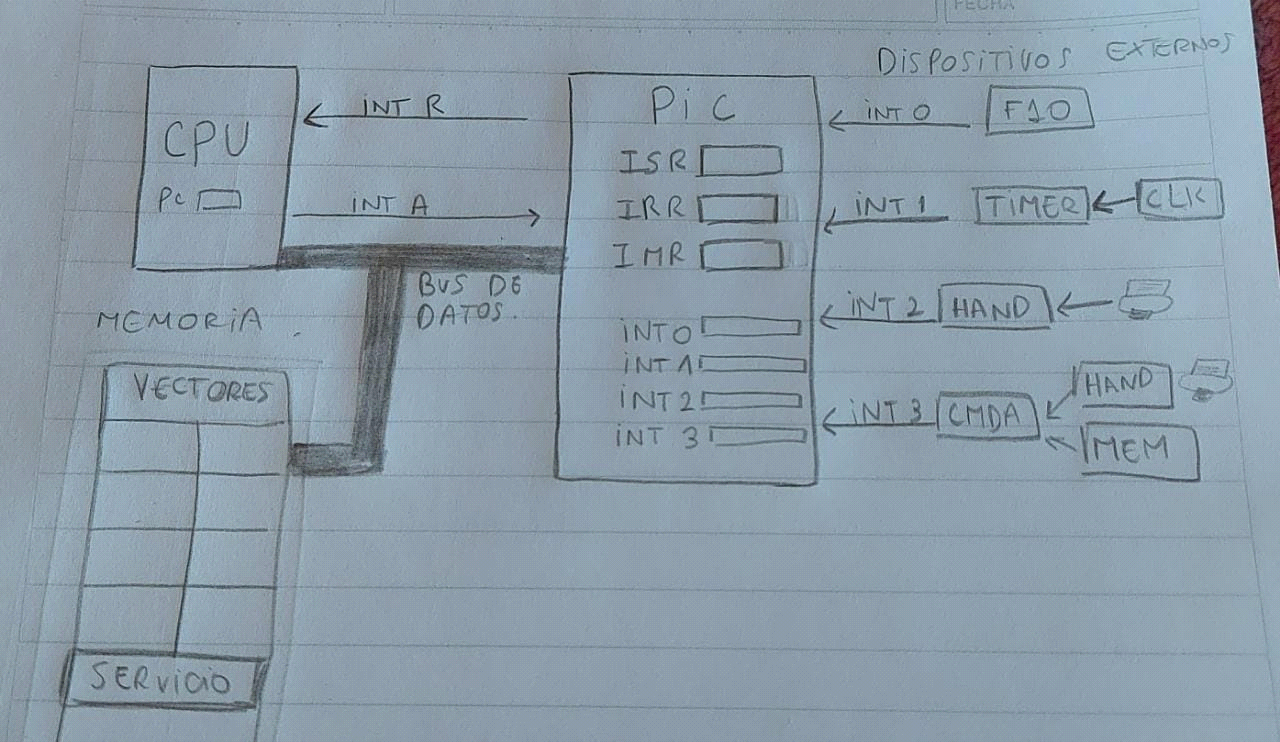 FECHA
DISPOSITIVOS EXTERNOS
CPU
PC
INT R
INT A
BUS DE
DATOS.
PiC
ISR
IRR
IMR
INT 0
INT 1
INT 2
INT 3
INT 0
F10
INT 1
TIMER
CLK
INT 2
HAND
INT 3
CMDA
HAND
MEM
MEMORIA
VECTORES
SERVICIO